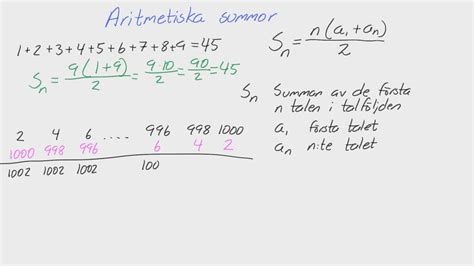 Aritmetiska summor
1+2+3+4+5+6+7+8+9=45
Sn = 9(1+9)/2 = 9·10/2 = 90/2 = 45
Sn = n(a1+an)/2
Sn Summan av de första
n talen i talföljden
a1 första talet
an n:te talet
2 4 6 .... 996 998 1000
1000 998 996 6 4 2
1002 1002 1002 100